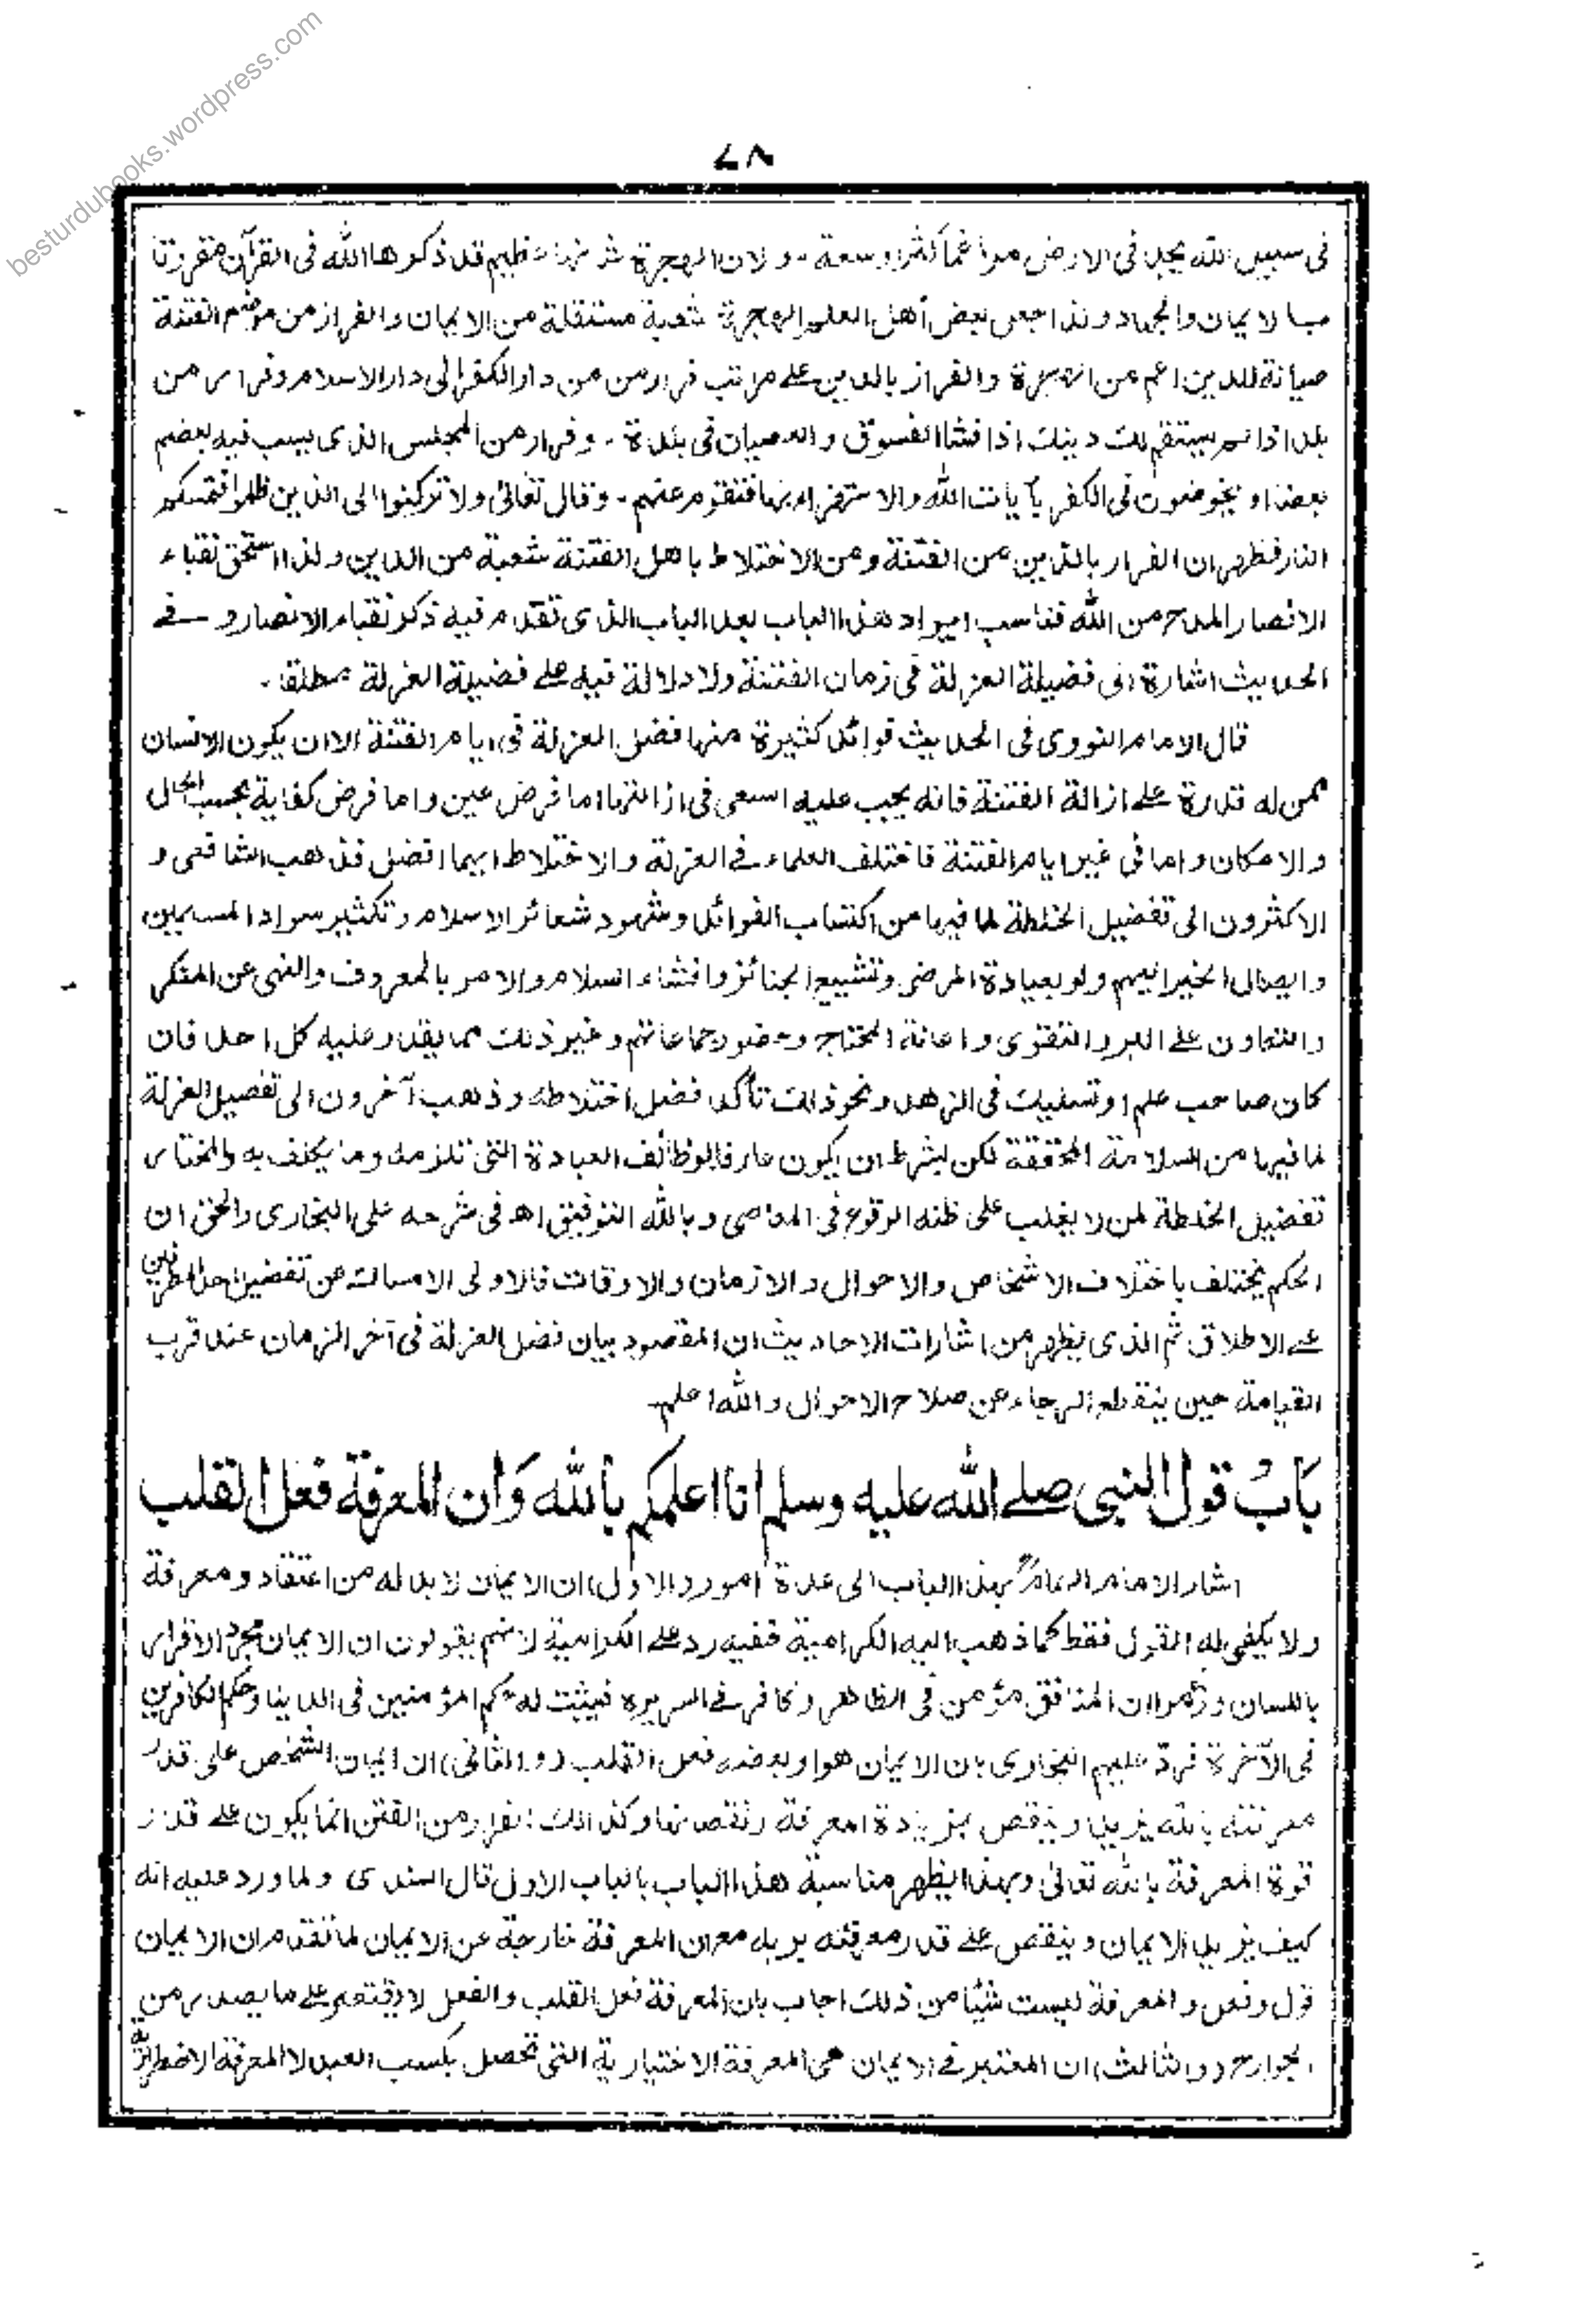 besturdubooks.wordpress.com
٧٨
فى سبيل الله يجد فى الارض مراغما كثيرا وسعة - ولان الهجرة شرفها عظيم قد ذكرها الله فى القرآن مقرونا
مبا لايمان والجهاد ولذا جعل بعض أهل العلم الهجرة شعبة مستقلة من الايمان والفرار من موضع الفتنة
صيانة للدين اعم من الهجرة والفرار بالدين على مراتب فرار من من دار الكفر الى دار الاسلام وفرار من
بلد اذا لم يستقم لك دينك اذا فشا الفسوق والعصيان فى بلدة - وفرار من المجلس الذى يسب فيه بعضهم
بعضا او يخوضون فى الكفر بآيات الله والاستهزاء بها فتقوم عنهم - وقال تعالىٰ ولا تركنوا الى الذين ظلموا فتمسكم
النار فظهر ان الفرار بالدين من الفتنة ومن الاختلاط باهل الفتنة شعبة من الدين ولذا استحق نقباء
الانصار المدح من الله فناسب ايراد هذا الباب بعد الباب الذى تقدم فيه ذكر نقباء الانصار و فى
الحديث اشارة الى فضيلة العزلة فى زمان الفتنة ولا دلالة فيه على فضيلة العزلة مطلقا -
قال الامام النووى فى الحديث فوائد كثيرة منها فضل العزلة فى ايام الفتنة الا ان يكون الانسان
ممن له قدرة على ازالة الفتنة فانه يجب عليه السعى فى ازالتها اما فرض عين واما فرض كفاية بحسب الحال
والامكان واما فى غير ايام الفتنة فاختلف العلماء فى العزلة والاختلاط ايهما افضل فذهب الشافعى و
الاكثرون الى تفضيل الخلطة لما فيها من اكتساب الفوائد وشهود شعائر الاسلام وتكثير سواد المسلمين
وايصال الخير اليهم ولو بعيادة المرضى وتشييع الجنائز وافشاء السلام والامر بالمعروف والنهى عن المنكر
والتعاون على البر والتقوى واعانة المحتاج وحضور جماعاتهم وغير ذلك مما يقدر عليه كل احد فان
كان صاحب علم او تسليك فى الزهد ونحو ذلك تأكد فضل اختلاطه وذهب آخرون الى تفضيل العزلة
لما فيها من السلامة المحققة لكن بشرط ان يكون عارفا بوظائف العبادة التى تلزمه وما يكلف به والمختار
تفضيل الخلطة لمن لا يغلب على ظنه الوقوع فى المعاصى وبالله التوفيق اھ فى شرحه على البخارى والحق ان
الحكم يختلف باختلاف الاشخاص والاحوال والازمان والاوقات فالاولى الامساك عن تفضيل احد الطرفين
على الاطلاق ثم الذى يظهر من اشارات الاحاديث ان المقصود بيان فضل العزلة فى آخر الزمان عند قرب
القيامة حين ينقطع الرجاء عن صلاح الاحوال والله اعلم -
بَابُ قول النبى صلى الله عليه وسلم انا اعلمكم بالله وَأن المعرفة فعل القلب
اشار الامام الهمام بهذا الباب الى عدة امور (الاول) ان الايمان لا بد له من اعتقاد ومعرفة
ولا يكفى له القول فقط كما ذهب اليه الكرامية ففيه رد على الكرامية لانهم يقولون ان الايمان مجرد الاقرار
باللسان وزعموا ان المنافق مؤمن فى الظاهر وكافر فى السريرة فيثبت له حكم المؤمنين فى الدنيا وحكم الكافرين
فى الآخرة فردّ عليهم البخارى بان الايمان هو او بعضه فعل القلب (والثانى) ان ايمان الشخص على قدر
معرفته بالله يزيد وينقص بزيادة المعرفة ونقصانها وكذلك الفرار من الفتن انما يكون على قدر
قوة المعرفة بالله تعالىٰ وبهذا يظهر مناسبة هذا الباب بالباب الاول قال السندى ولما ورد عليه انه
كيف يزيد الايمان وينقص على قدر معرفته بربه مع ان المعرفة خارجة عن الايمان لما تقدم ان الايمان
قول وفعل والمعرفة ليست شيئا من ذلك اجاب بان المعرفة فعل القلب والفعل لا يقتصر على ما يصدر من
الجوارح (والثالث) ان المعتبر فى الايمان هى المعرفة الاختيارية التى تحصل بكسب العبد لا المعرفة الاضطرارية